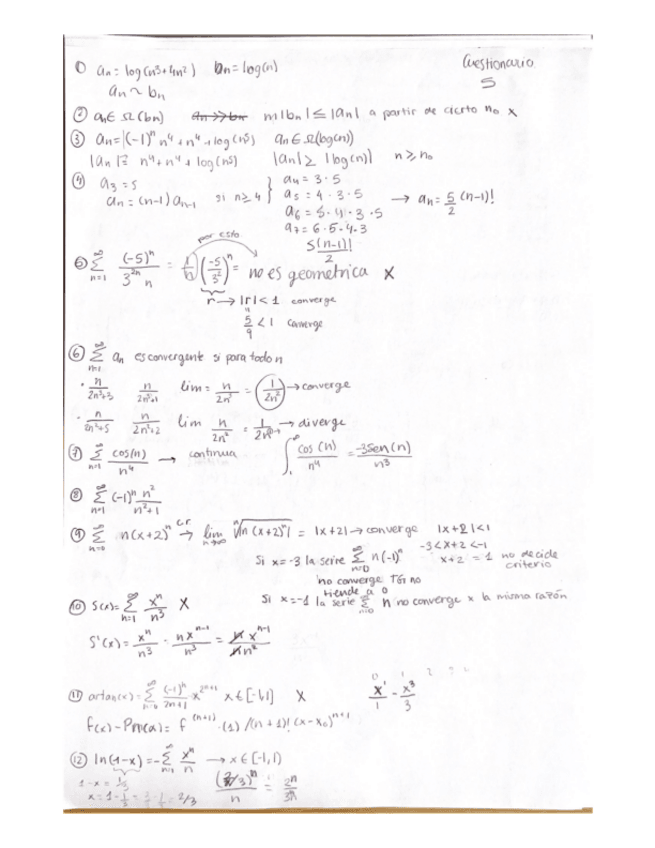 Cuestionario
5
① an = log(n³+4n²)  bn = log(n)
an ~ bn
② an ∈ Ω(bn)  an >> bn  m|bn| ≤ |an| a partir de cierto no x
③ an = |(-1)ⁿ n⁴ + n⁴ + log(n⁵)  an ∈ Ω(log(n))
|an| = n⁴ + n⁴ + log(n⁵)  |an| ≥ |log(n)|  n ≥ n₀
④ a₃ = 5
an = (n-1) an-1  si n ≥ 4
a₄ = 3·5
a₅ = 4·3·5
a₆ = 5·4·3·5
a₇ = 6·5·4·3
5(n-1)!/2
→ an = 5/2 (n-1)!
por esto
⑤ ∞ Σ n=1 (-5)ⁿ/3²ⁿ n = 1/n (-5/3²)ⁿ = no es geometrica X
r → |r| < 1 converge
5/9 < 1 converge
⑥ ∞ Σ n=1 an es convergente si para todo n
· n/2n³+3  n/2n³+1  lim = n/2n³ = 1/2n² → converge
· n/2n²+5  n/2n²+2  lim n/2n² = 1/2n → diverge
⑦ ∞ Σ n=1 cos(n)/n⁴ → continua  ∫₁^∞ cos(n)/n⁴ = -3sen(n)/n³
⑧ ∞ Σ n=1 (-1)ⁿ n²/n²+1
⑨ ∞ Σ n=0 n(x+2)ⁿ C.R. → lim n→∞ ⁿ√|n(x+2)ⁿ| = |x+2| → converge  |x+2| < 1
-3 < x+2 < -1
x+2 = 1 no decide criterio
Si x = -3 la serie ∞ Σ n=0 n(-1)ⁿ
no converge TG no tiende a 0
Si x = -1 la serie ∞ Σ n=0 n no converge x la misma razón
⑩ S(x) = ∞ Σ n=1 xⁿ/n³ X
S'(x) = xⁿ/n³ · nxⁿ⁻¹/n³ = n xⁿ⁻¹/n n²
⑪ artan(x) = ∞ Σ n=0 (-1)ⁿ/2n+1 · x²ⁿ⁺¹  x ∈ [-1,1]  X  x¹/1 - x³/3
f(x) - Pn(a) = f⁽ⁿ⁺¹⁾ · (1) /(n+1)! (x-x₀)ⁿ⁺¹
⑫ ln(1-x) = - ∞ Σ n=1 xⁿ/n → x ∈ [-1,1)
1-x = 1/3
x = 1 - 1/3 = 3/3 - 1/3 = 2/3
(2/3)ⁿ/n = 2ⁿ/3ⁿ